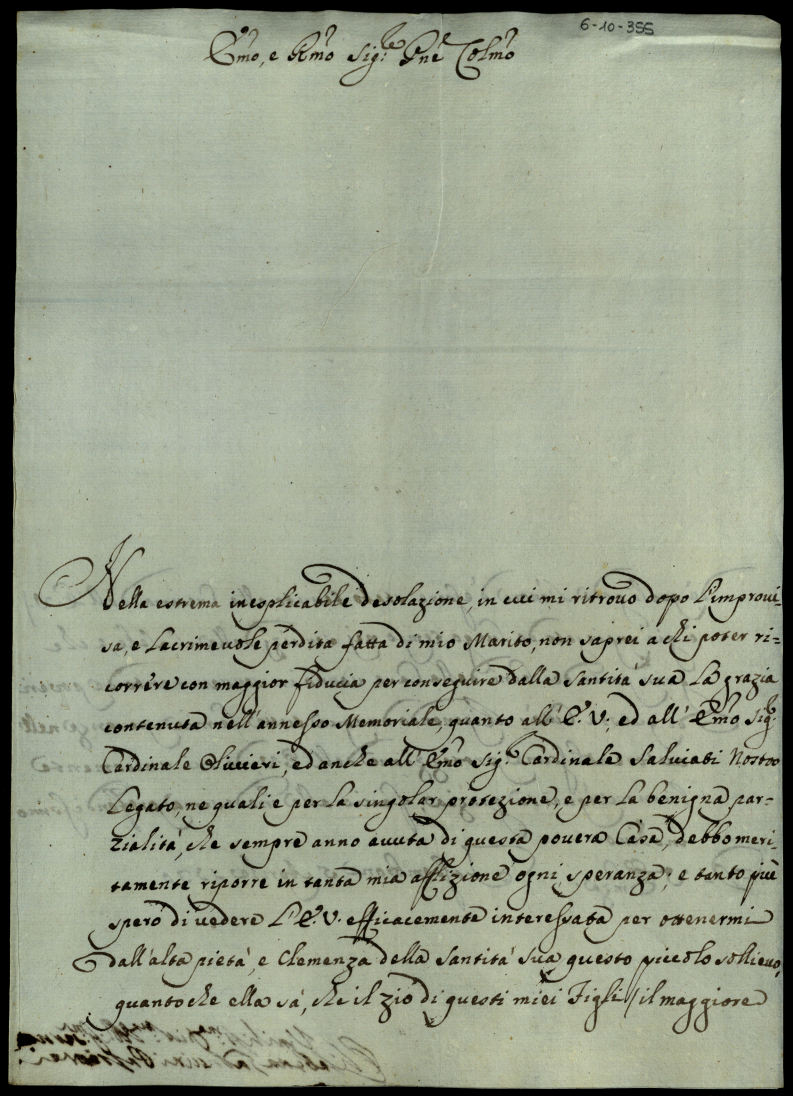 6-10-355
Emo, e Rmo Sig.re Pne Colmo
Nella estrema inesplicabile desolazione, in cui mi ritrovo dopo l'improvi-
sa, e lacrimevole perdita fatta di mio Marito, non saprei a chi poter ri=
correre con maggior fiducia per conseguire dalla Santità sua la grazia
contenuta nell'annesso Memoriale, quanto all' E.V., ed all' Emo Sig.r
Cardinale Olivieri, ed anche all' Emo Sig.r Cardinale Salviati Nostro
Legato, ne quali e per la singolar protezione, e per la benigna par=
zialità, che sempre anno avuta di questa povera Casa, debbo meri=
tamente riporre in tanta mia afflizione ogni speranza; e tanto più
spero di vedere l'E.V. efficacemente interessata per ottenermi
dall'alta pietà, e Clemenza della Santità sua questo piccolo sollievo,
quantoche ella sà, che il zio di questi miei Figli /il maggiore